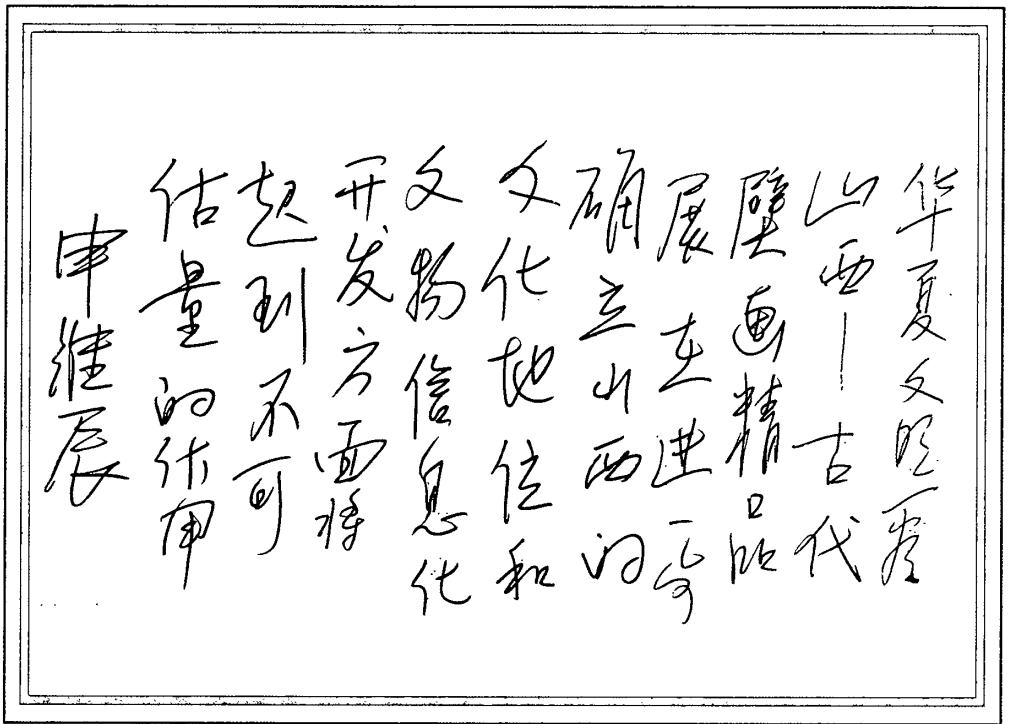 华夏文明看
山西—古代
壁画精品
展在进一步
确立山西的
文化地位和
文物信息化
开发方面将
起到不可
估量的作用
申维辰